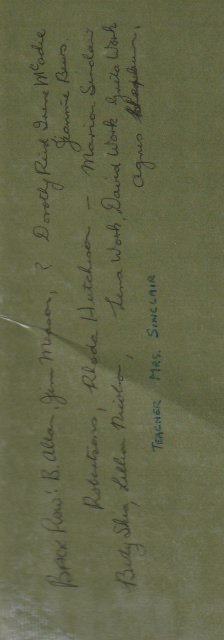 Back Row: B. Allan, Jim Manson, ? Dorothy Reid Irene McAdie
Jeannie Bews.
Robertsons, Rhoda Hutchison – Marion Sinclair
Billy Shea, Lillian Nicolson, Lena Work, David Work Greta Work
Agnes
TEACHER MRS. SINCLAIR